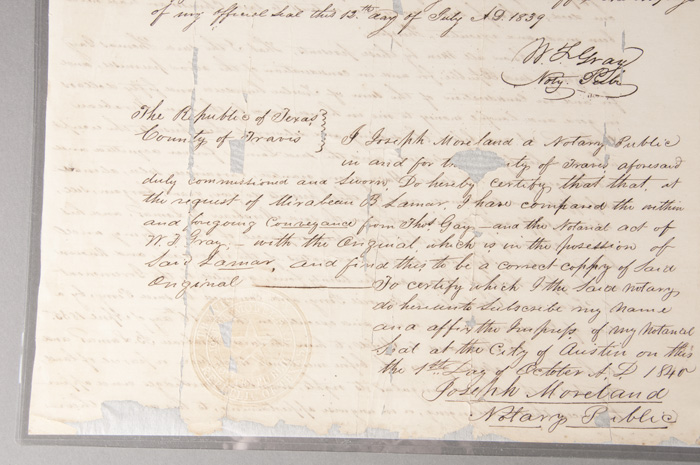 of my official Seal this 13.th day of July A.D. 1839
W. F. Gray
Noty. Pub.
The Republic of Texas
County of Travis
I Joseph Moreland a Notary Public
in and for of Travis aforesaid
duly commissioned and Sworn Do hereby certify that that, at
the request of Mirabeau B Lamar, I have compared the within
and forgoing Conveyance from Thos. Gay and the Notarial act of
W. F. Gray, with the Original, which is in the possession of
Said Lamar, and find this to be a correct coppy of Said
Original
To certify which I the Said notary
do hereunto Subscribe my name
and affix the Impress of my Notarial
Seal at the City of Austin on this
the 1st. Day of October A.D 1840
Joseph Moreland
Notary Public